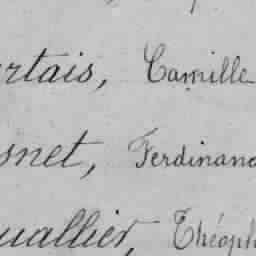 rtais, Camille
snet, Ferdinand
uallier, Théoph